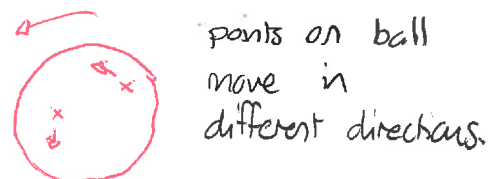 points on ball
move in
different directions.